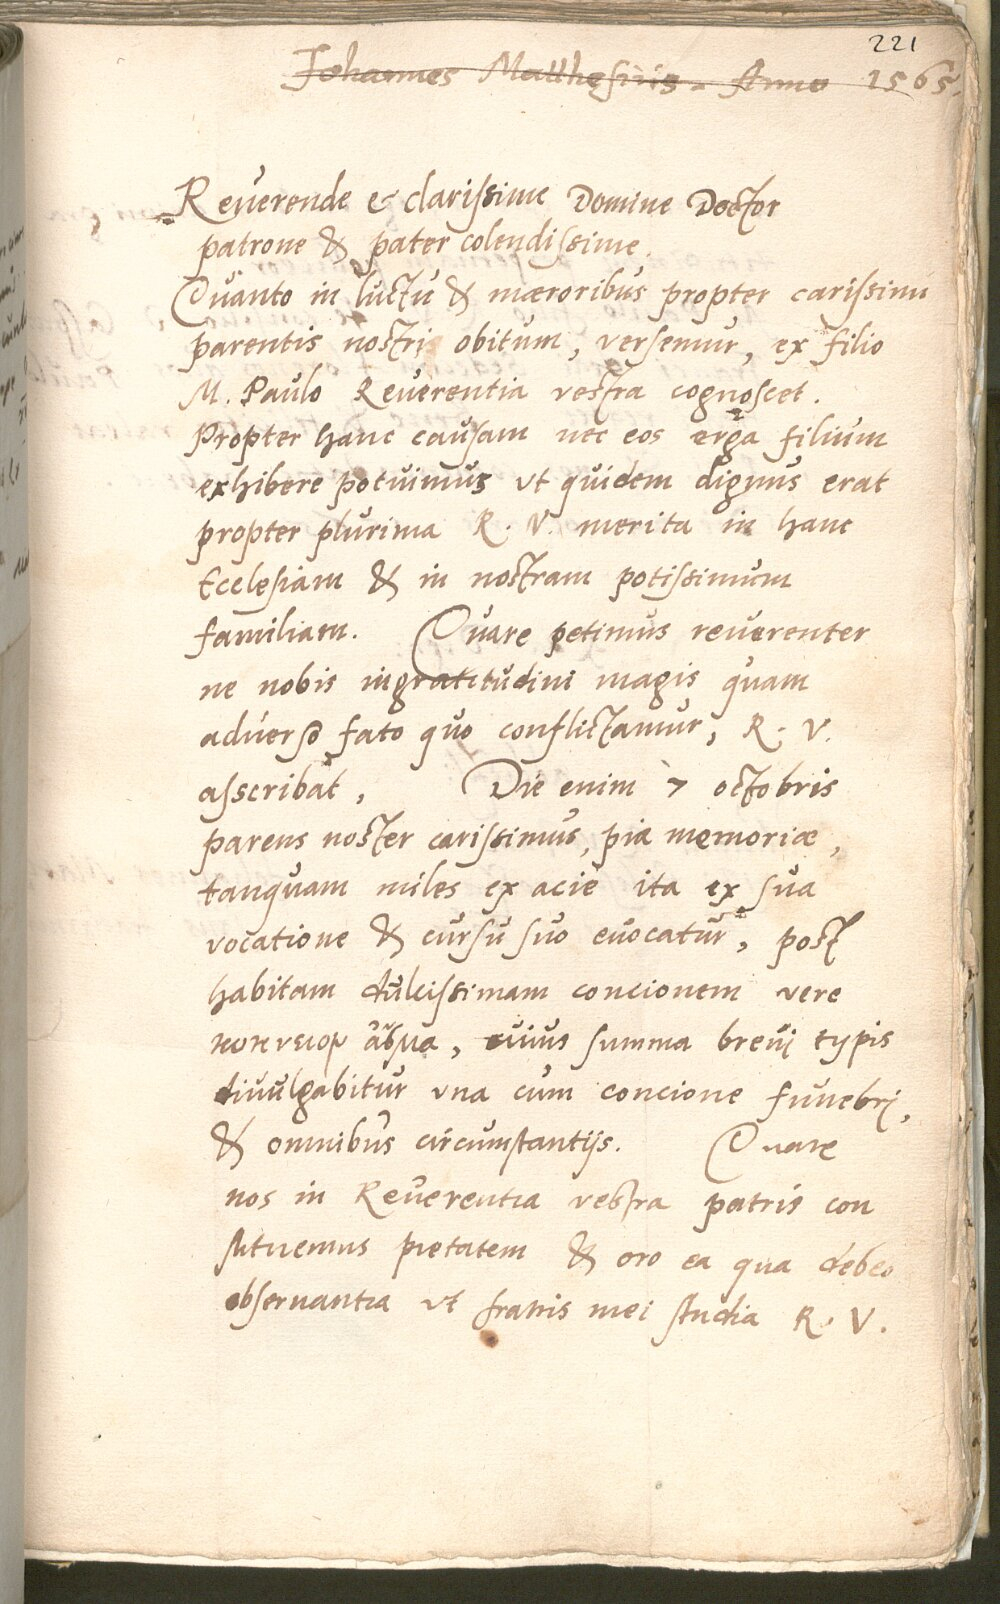 221
Johannes Matthesius. Anno 1565.
Reuerende & clarissime Domine Doctor
patrone & pater colendissime.
Quanto in luctu & mæroribus propter carissimi
parentis nostri obitum, versemur, ex filio
M. Paulo Reuerentia vestra cognoscet.
Propter hanc causam nec eos erga filium
exhibere potuimus vt quidem dignus erat
propter plurima R. V. merita in hanc
Ecclesiam & in nostram potissimum
familiam. Quare petimus reuerenter
ne nobis ingratitudini magis quam
aduerso fato quo conflictamur, R. V.
asscribat, Die enim 7 octobris
parens noster carissimus, pia memoriæ,
tanquam miles ex acie ita ex sua
vocatione & cursu suo euocatur, post
habitam dulcissimam concionem vere
cuius summa breui typis
diuulgabitur vna cum concione funebri,
& omnibus circumstantijs. Quare
nos in Reuerentia vestra patris con
stituemus pietatem & oro ea qua debeo
obseruantia vt fratris mei studia R. V.